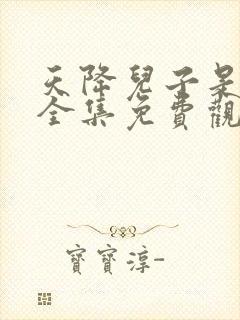 天降兒子呆
全集免費觀
寶寶淳-